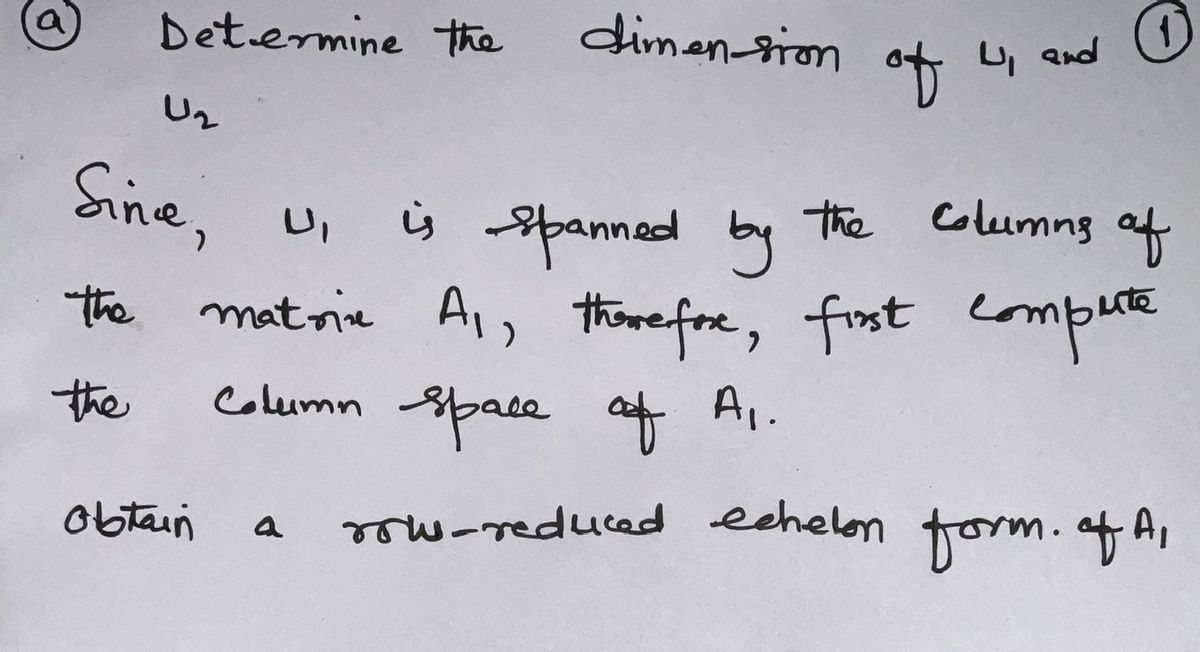 (a) Determine the dimension of U₁ and (1)
U₂
Since, U₁ is spanned by the columns of
the matrix A₁, therefore, first compute
the column space of A₁.
Obtain a row-reduced echelon form. of A₁